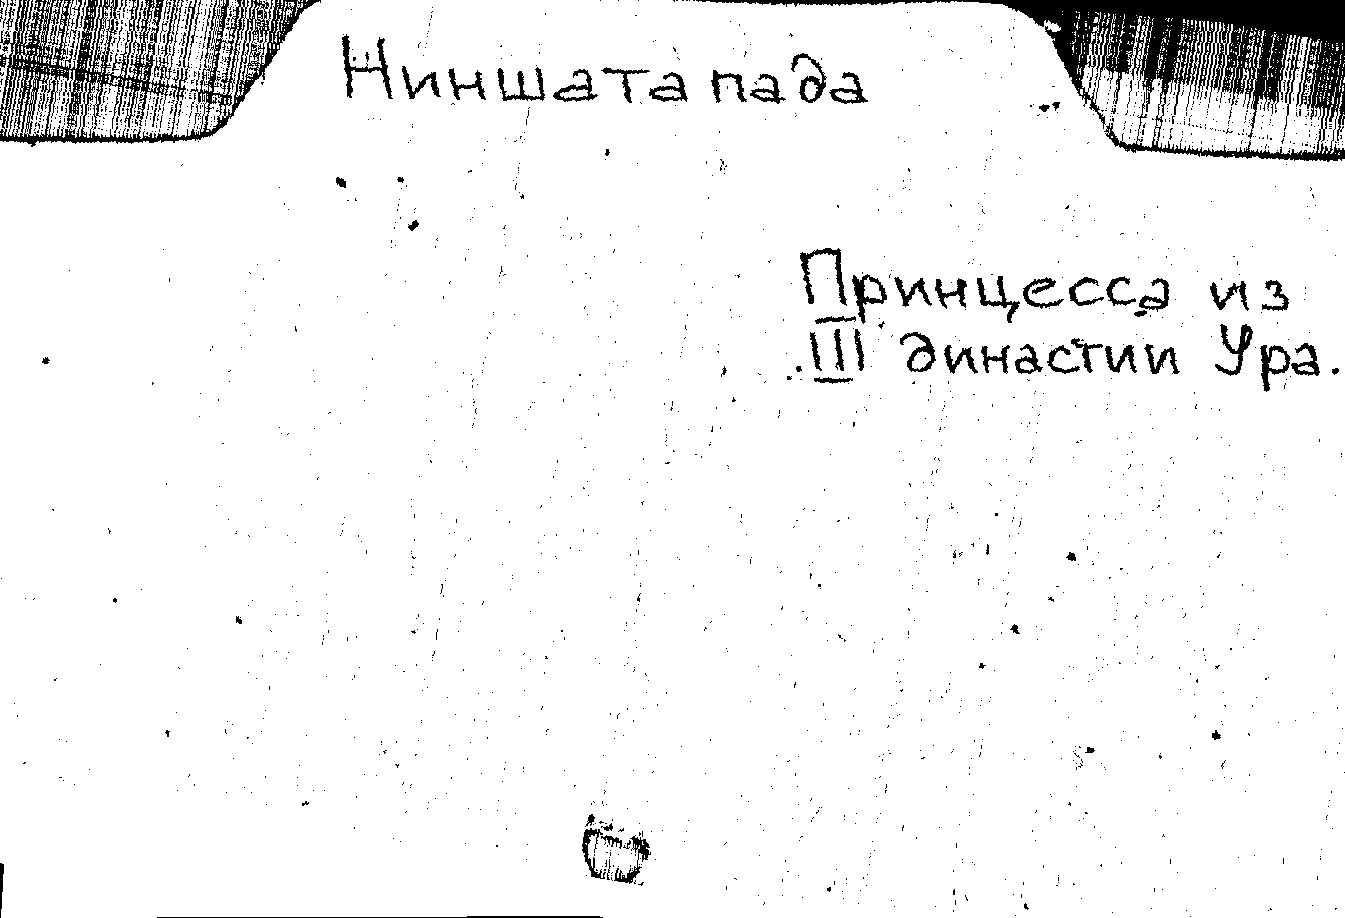 Ниншатапада
Принцесса из
III династии Ура.